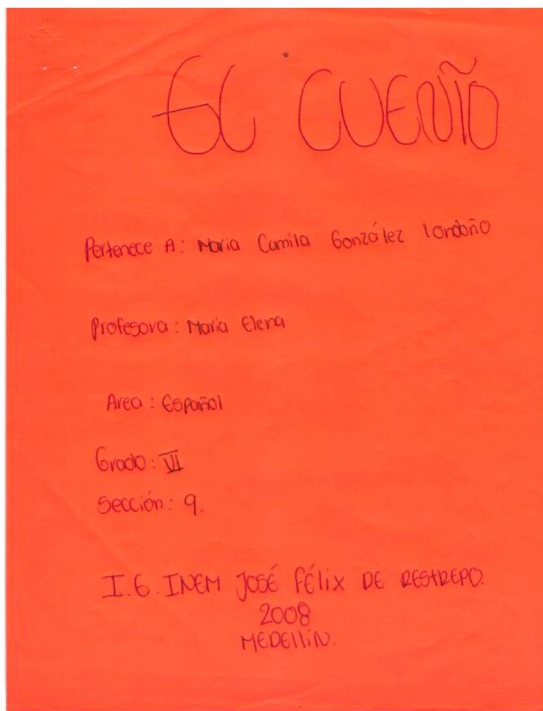 EL CUENTO
Pertenece A: María Camila González Londoño
Profesora: María Elena
Area: Español
Grado: VI
Sección: 9.
I.E. INEM JOSÉ FÉlix DE RESTREPO.
2008
MEDELLÍN.